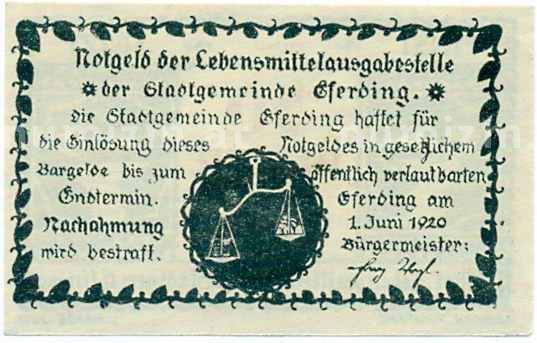 Notgeld der Lebensmittelausgabestelle
der Stadtgemeinde Eferding.
Die Stadtgemeinde Eferding haftet für
die Einlösung dieses Notgeldes in gesetzlichem
Bargelde bis zum öffentlich verlautbarten
Endtermin. Eferding am
Nachahmung 1. Juni 1920
wird bestraft. Bürgermeister: